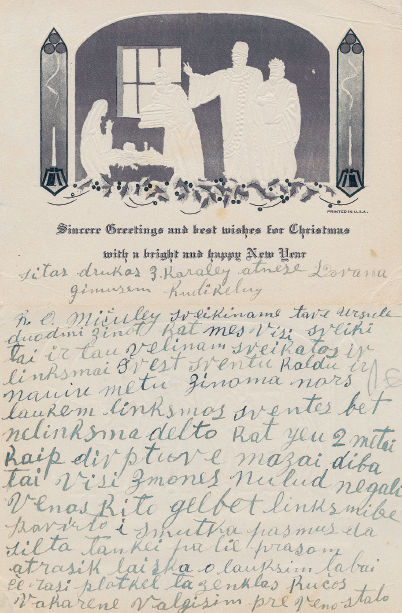 PRINTED IN U.S.A.
Sincere Greetings and best wishes for Christmas
with a bright and happy New Year
sitas drukos 3 Karaley atnese Dovana
gimusem Kudikeluy
O. Mičuley sveikiname tave Ursule
duodam žinot kat mes visi sveiki
tai ir tau velinam sveikatos ir
linksmai švest sventu Kaldu ir
nauiu metu žinoma nors
laukem linksmos sventes bet
nelinksma delto kat yeu 2 metai
kaip dirptuve mazai diba
tai visi žmones nulud negali
venas kito gelbet linksmibe
pavirto i smutka pasmus da
silta tankei pa lie prasom
atrasik laiška o lauksim labai
plotkel ta zenklas Kučos
vakarene valgisim pre veno stalo